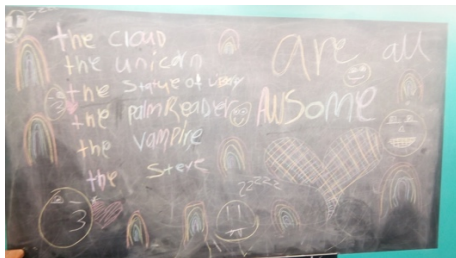 the cloud
the unicorn
the statue of liberty
the palm Reader
the vampire
the Steve
are all
AWSome
zzzzz